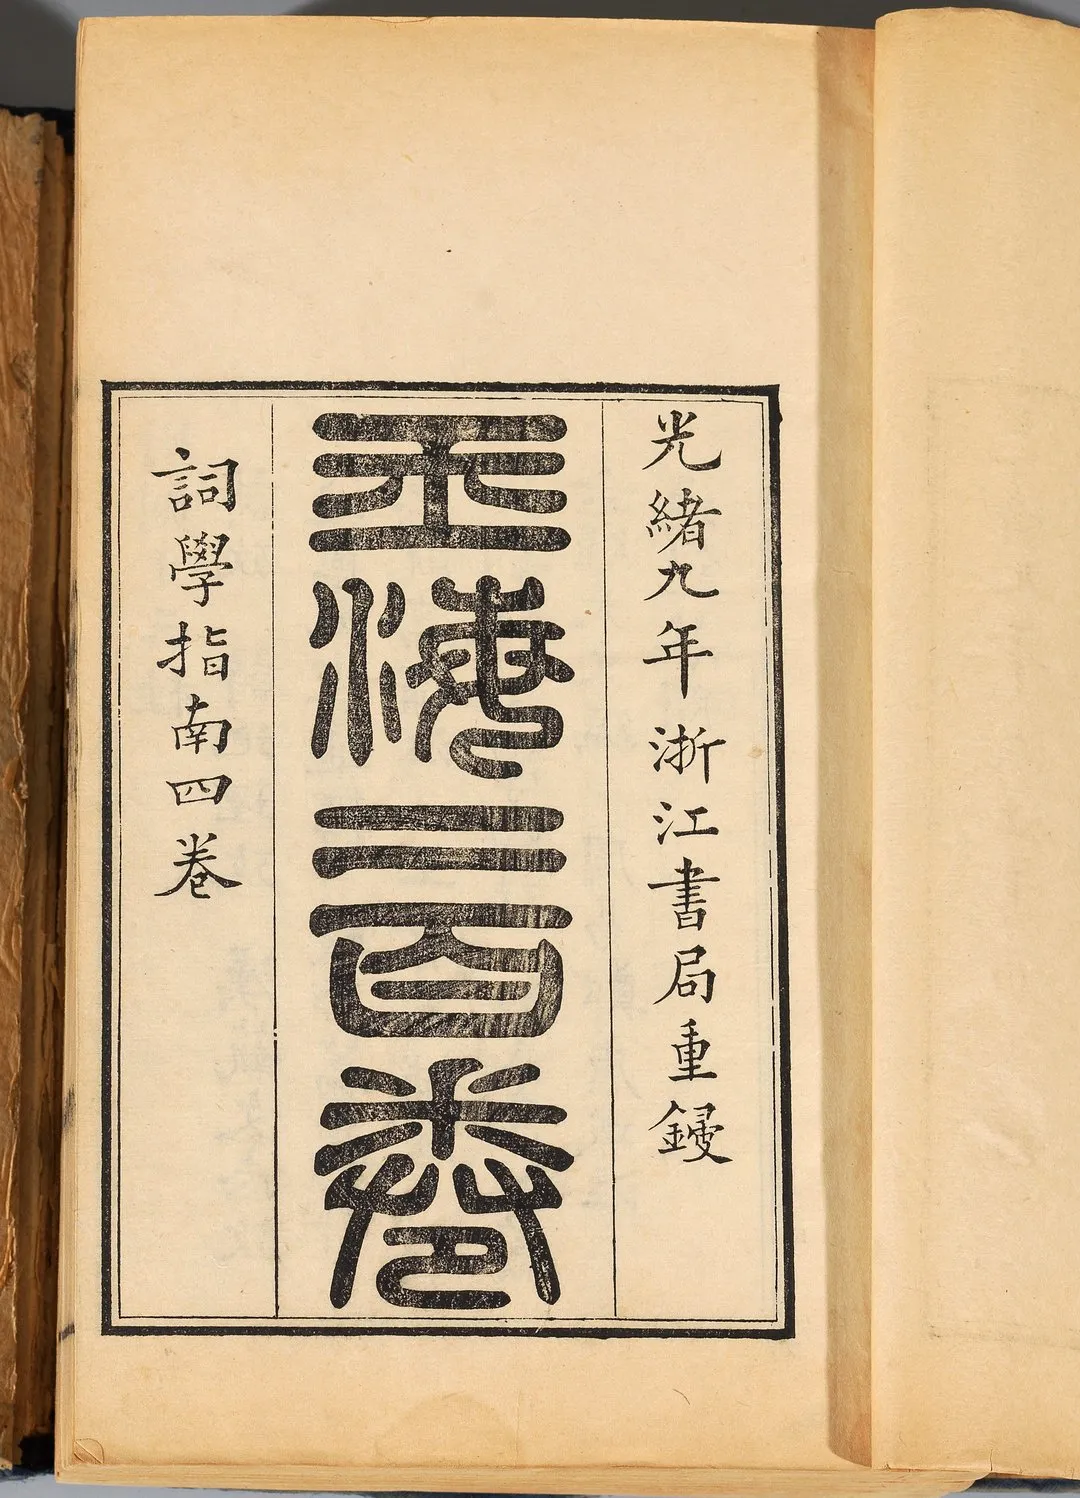 光緒九年浙江書局重鋟
玉海二百卷
詞學指南四卷